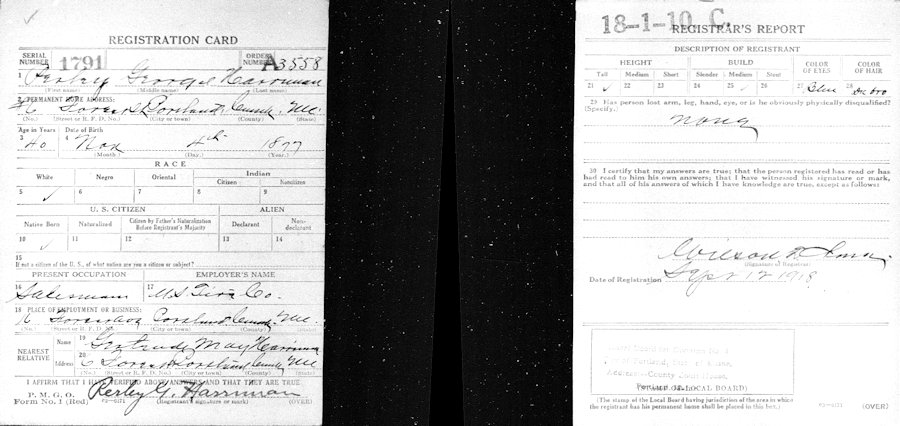 REGISTRATION CARD
SERIAL NUMBER 1791 ORDER NUMBER A3558
1 Perley George Harriman
(First name) (Middle name) (Last name)
2 PERMANENT HOME ADDRESS:
6 Forest St Portland Cumb Me
(No.) (Street or R. F. D. No.) (City or town) (County) (State)
Age in Years Date of Birth
3 40 4 Nov 4th 1877
(Month.) (Day.) (Year.)
RACE
White Negro Oriental Indian
Citizen Noncitizen
5 ✓ 6 7 8 9
U. S. CITIZEN ALIEN
Native Born Naturalized Citizen by Father's Naturalization Before Registrant's Majority Declarant Non-declarant
10 ✓ 11 12 13 14
15
If not a citizen of the U. S., of what nation are you a citizen or subject?
PRESENT OCCUPATION EMPLOYER'S NAME
16 Salesman 17 U.S. Tire Co.
18 PLACE OF EMPLOYMENT OR BUSINESS:
Forest Ave Portland Cumb Me
(No.) (Street or R. F. D. No.) (City or town) (County) (State)
NEAREST RELATIVE
Name 19 Gertrude May Harriman
Address 20 6 Forest St Portland Cumb Me
(No.) (Street or R. F. D. No.) (City or town) (County) (State)
I AFFIRM THAT I HAVE VERIFIED ABOVE ANSWERS AND THAT THEY ARE TRUE
P. M. G. O.
Form No. 1 (Red) Perley G. Harriman
(Registrant's signature or mark) (OVER)
18-1-10 C.
REGISTRAR'S REPORT
DESCRIPTION OF REGISTRANT
HEIGHT BUILD COLOR OF EYES COLOR OF HAIR
Tall Medium Short Slender Medium Stout
21 ✓ 22 23 24 25 26 27 Blue 28 Dk bro
29 Has person lost arm, leg, hand, eye, or is he obviously physically disqualified?
(Specify.)
None
30 I certify that my answers are true; that the person registered has read or has
had read to him his own answers; that I have witnessed his signature or mark,
and that all of his answers of which I have knowledge are true, except as follows:
Wilson
(Signature of Registrar)
Date of Registration Sept 12 1918
(STAMP OF LOCAL BOARD)
(The stamp of the Local Board having jurisdiction of the area in which
the registrant has his permanent home shall be placed in this box.)
(OVER)